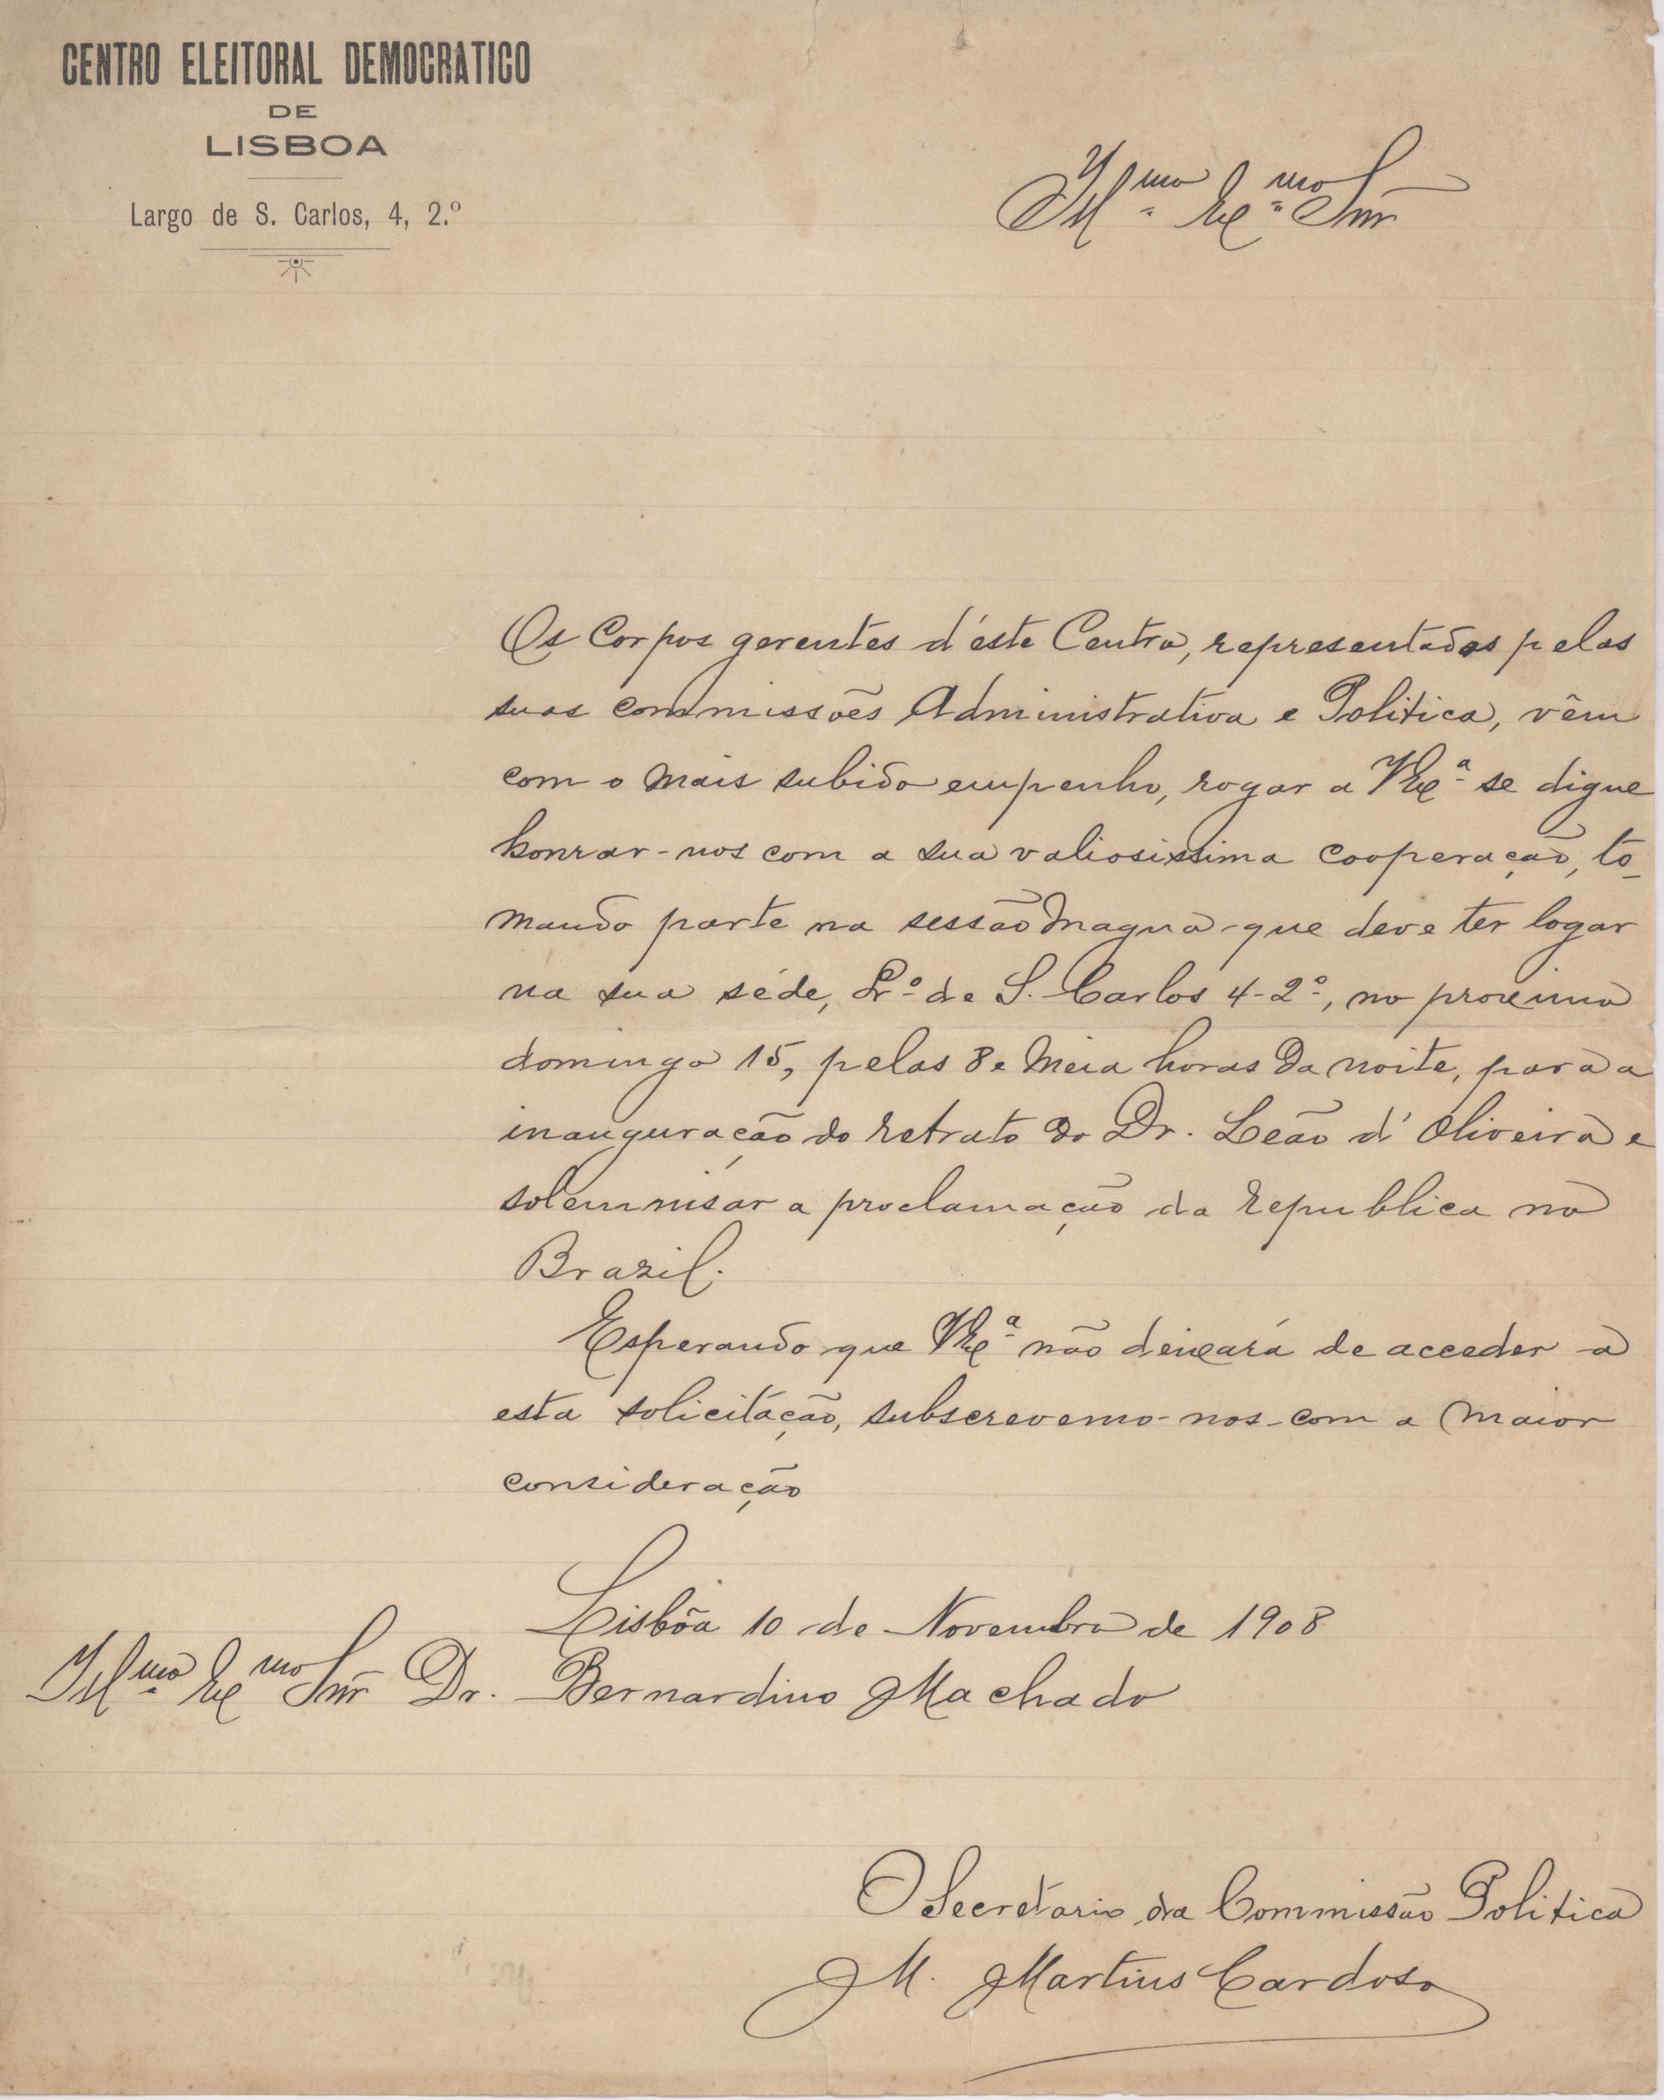 CENTRO ELEITORAL DEMOCRATICO
DE
LISBOA
Largo de S. Carlos, 4, 2.º
Illmo Exmo Snr
Os Corpos gerentes d'éste Centro, representados pelas
suas commissões Administrativa e Politica, vêm
com o mais subido empenho, rogar a V Exª se digne
honrar-nos com a sua valiosissima cooperação, to-
mando parte na sessão magna que deve ter logar
na sua séde, Lrº de S. Carlos 4-2º, no proximo
domingo 15, pelas 8 e meia horas da noite, para a
inauguração do retrato do Dr. Leão d'Oliveira e
solemnisar a proclamação da republica no
Brazil.
Esperando que V Exª não deixará de acceder a
esta solicitação, subscrevemo-nos com a maior
consideração
Lisbôa 10 de Novembro de 1908
Illmo Exmo Snr Dr. Bernardino Machado
O Secretario da Commissão Politica
M. Martins Cardoso